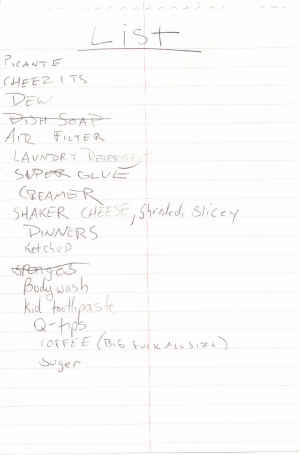 List
PICANTE
CHEEZITS
DEW
DISH SOAP
AIR FILTER
LAUNDRY
SUPER GLUE
CREAMER
SHAKER CHEESE, Shreded, Slicey
DINNERS
Ketchup
sponges
Body wash
Kid toothpaste
Q-tips
COFFEE (BIG
Suger